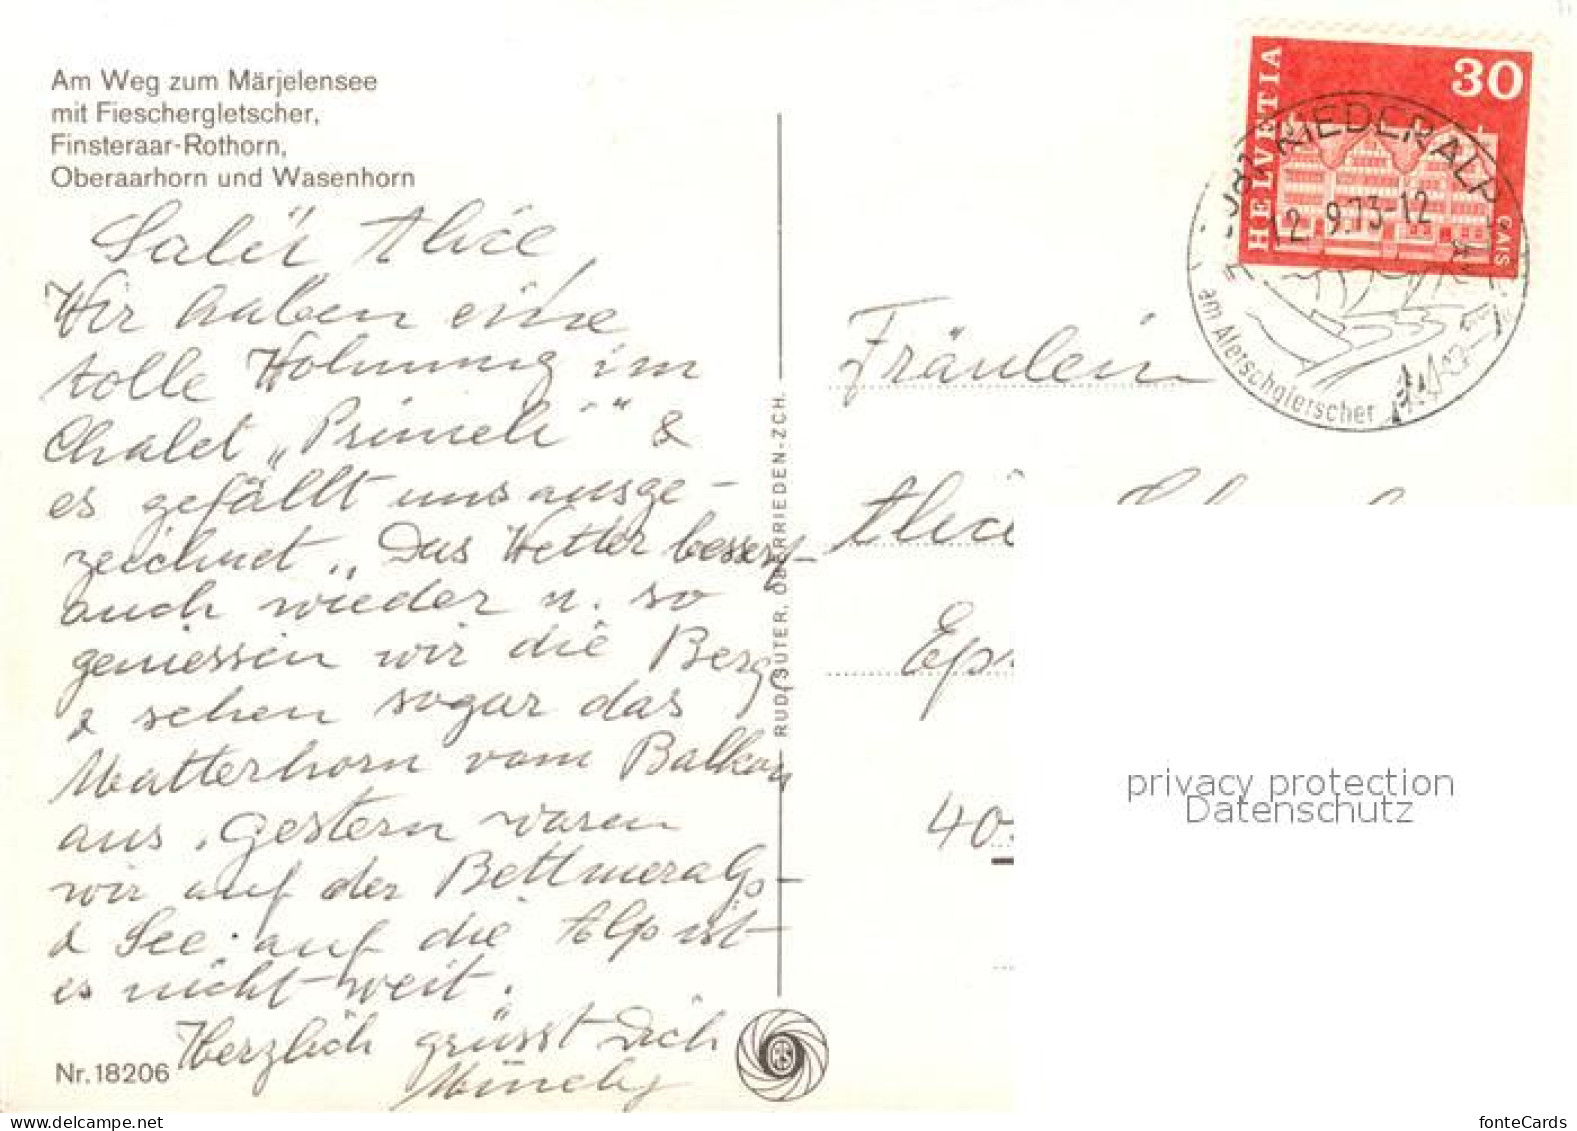 Am Weg zum Märjelensee
mit Fieschergletscher,
Finsteraar-Rothorn,
Oberaarhorn und Wasenhorn
Salü Alice,
Wir haben eine
tolle Wohnung im
Chalet „Primeli" &
es gefällt uns ausge-
zeichnet. Das Wetter bessert
auch wieder u. so
geniessen wir die Berge
& sehen sogar das
Matterhorn vom Balkon
aus. Gestern waren
wir auf der Bettmeralp
& See. auf die Alp ist
es nicht weit.
Herzlich grüsst Dich
Nr. 18206
RUD. SUTER, OBERRIEDEN-ZCH.
HELVETIA
30
GAIS
RIEDERALP
12.9.73-12
am Aletschgletscher
Fräulein
Alice
40
privacy protection
Datenschutz
fonteCards